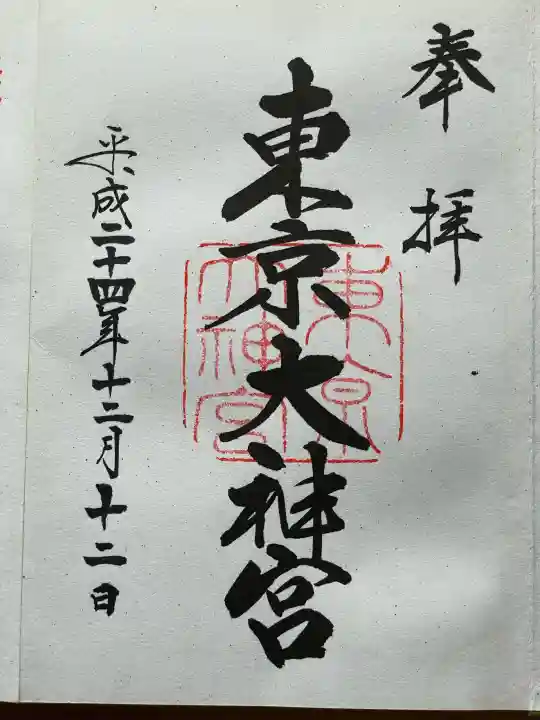 奉拝
東京大神宮
東京
大神宮
平成二十四年十二月十二日